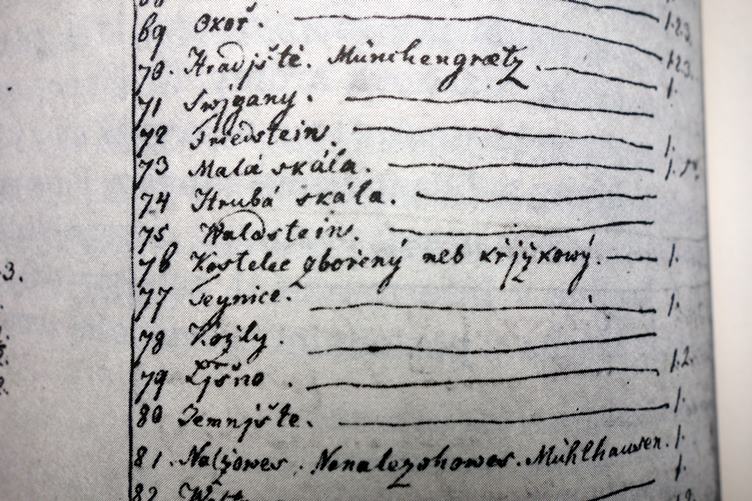 69 Okoř. 1.2.3.
70. Hradjště. Münchengrætz. 1.2.3.
71 Swjgany. 1.
72 Friedstein. 1.
73 Malá skála. 1.
74 Hrubá skála.
75 Waldstein.
76 Kostelec zbořený neb křjžkowý. 1.
77 Teynice. 1.
78 Kozily.
79 Ljšno. 1.2.
80 Jemnjště. 1.
81. Nalžowes. Mühlhausen. 1.
82